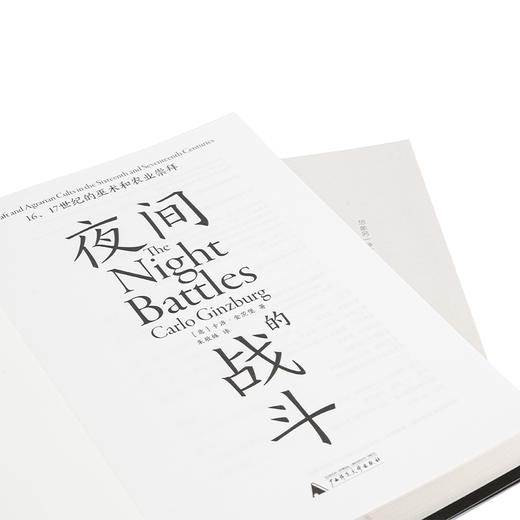 aft and Agrarian Cults in the Sixteenth and Seventeenth Centuries
16、17世纪的巫术和农业崇拜
夜间
The
Night
Battles
Carlo Ginzburg
[意]卡洛·金茨堡 著
朱歌姝 译
的
战
斗
广西师范大学出版社